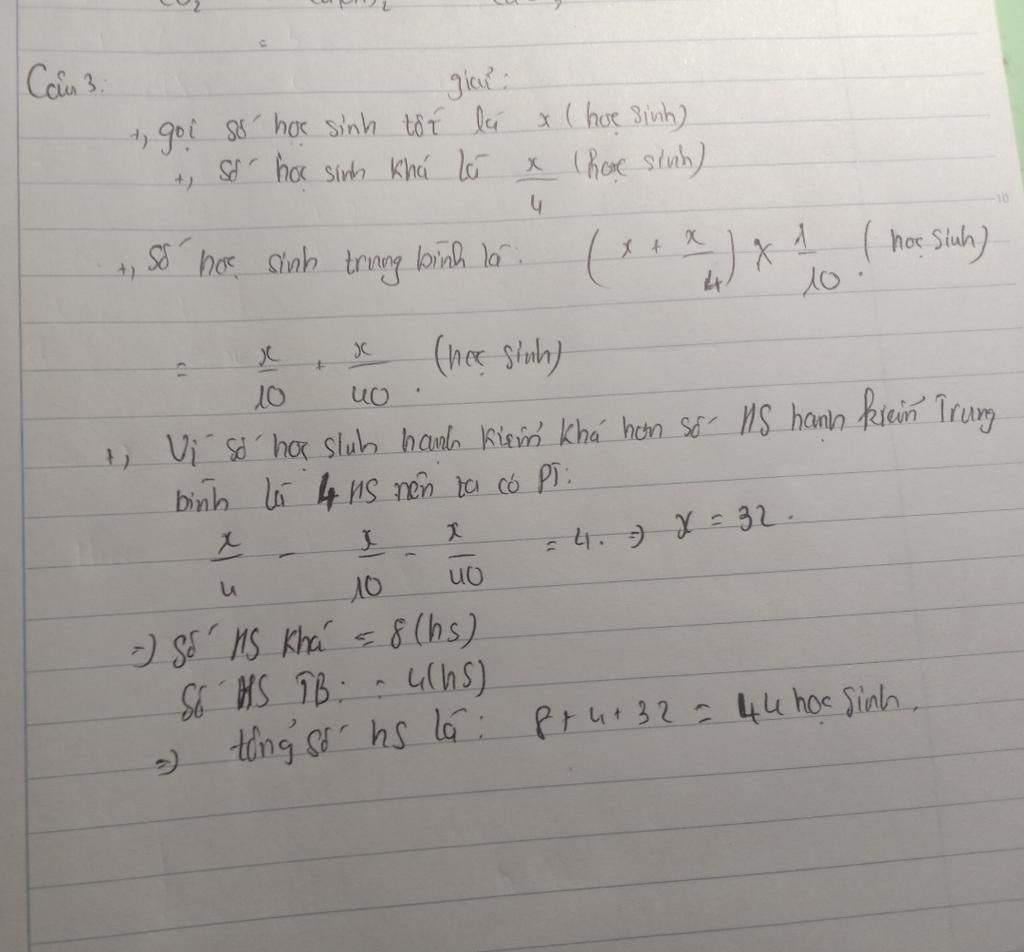 Câu 3: giải:
+, gọi số học sinh tốt là x (học sinh)
+, Số học sinh khá là x/4 (học sinh)
+, Số học sinh trung bình là: (x + x/4) x 1/10. (học sinh)
= x/10 + x/40. (học sinh)
+, Vì số học sinh hạnh kiểm khá hơn số HS hạnh kiểm Trung
bình là 4 HS nên ta có PT:
x/4 - x/10 - x/40 = 4. => x = 32.
=> Số HS khá = 8 (hs)
Số HS TB: = 4 (hs)
=> tổng số hs là: 8 + 4 + 32 = 44 học sinh.